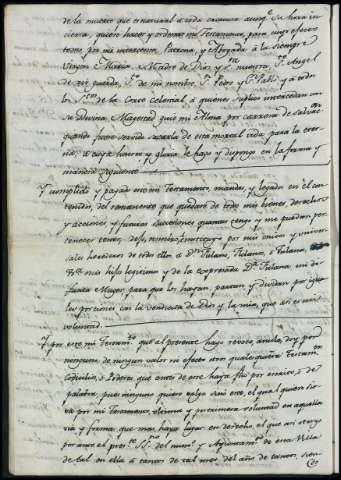 de la muerte que es natural a toda creatura aunq.e su hora in
cierta, quiero hacer y ordenar mi Testamento, para cuyo efecto
tomo por mi intercesora, Patrona, y Abogada a la siempre
Virgen Maria Madre de Dios, y S.ra nuestra, S.to Angel
de mi guarda, S.to de mi nombre, S.n Pedro y S.n Pablo, y a todos
los S.tos de la Corte Celestial, a quienes suplico intercedan con
su Divina Magestad guie mi Alma por carrera de salvac.on
quando fuere servido sacarla de esta mortal vida para la eter
na; a cuya honra y gloria le hago y dispongo en la forma y
manera siguiente
Y cumplido y pagado este mi Testamento, mandas y legados en él con
tenidos, del remanente que quedare de todos mis bienes, derechos
y acciones, y futuras succesiones que me tocan y me puedan per
tenecer, dejo, nombro, instituyo por mis unicos y univer
sales herederos de todos ellos a D.n Fulano, Fulano, o Fulano,
mis hijos legitimos y de la expresada D.a Fulana mi di
funta Muger, para que los hayan, partan y dividan por igua
les porciones con la vendicion de Dios y la mia, que asi es mi
voluntad.
Y por este mi Testam.to que al presente hago revoco, anulo, doy por
ninguno, de ningun valor ni efecto otros qualesquiera Testam.tos
Codicilios, o Poderes que antes de este haya fho por escrito, o de
palabra, pues ninguno quiero valga sino este, el qual quiero sir
va por mi Testamento, ultima y postrimera voluntad en aquella
via y forma que mas haya lugar en derecho, el que asi otorgo
por ante el pres.te S.no del num.o y Ayuntam.to de esta Villa
de tal en ella a tantos de tal mes del año de tantos, sien